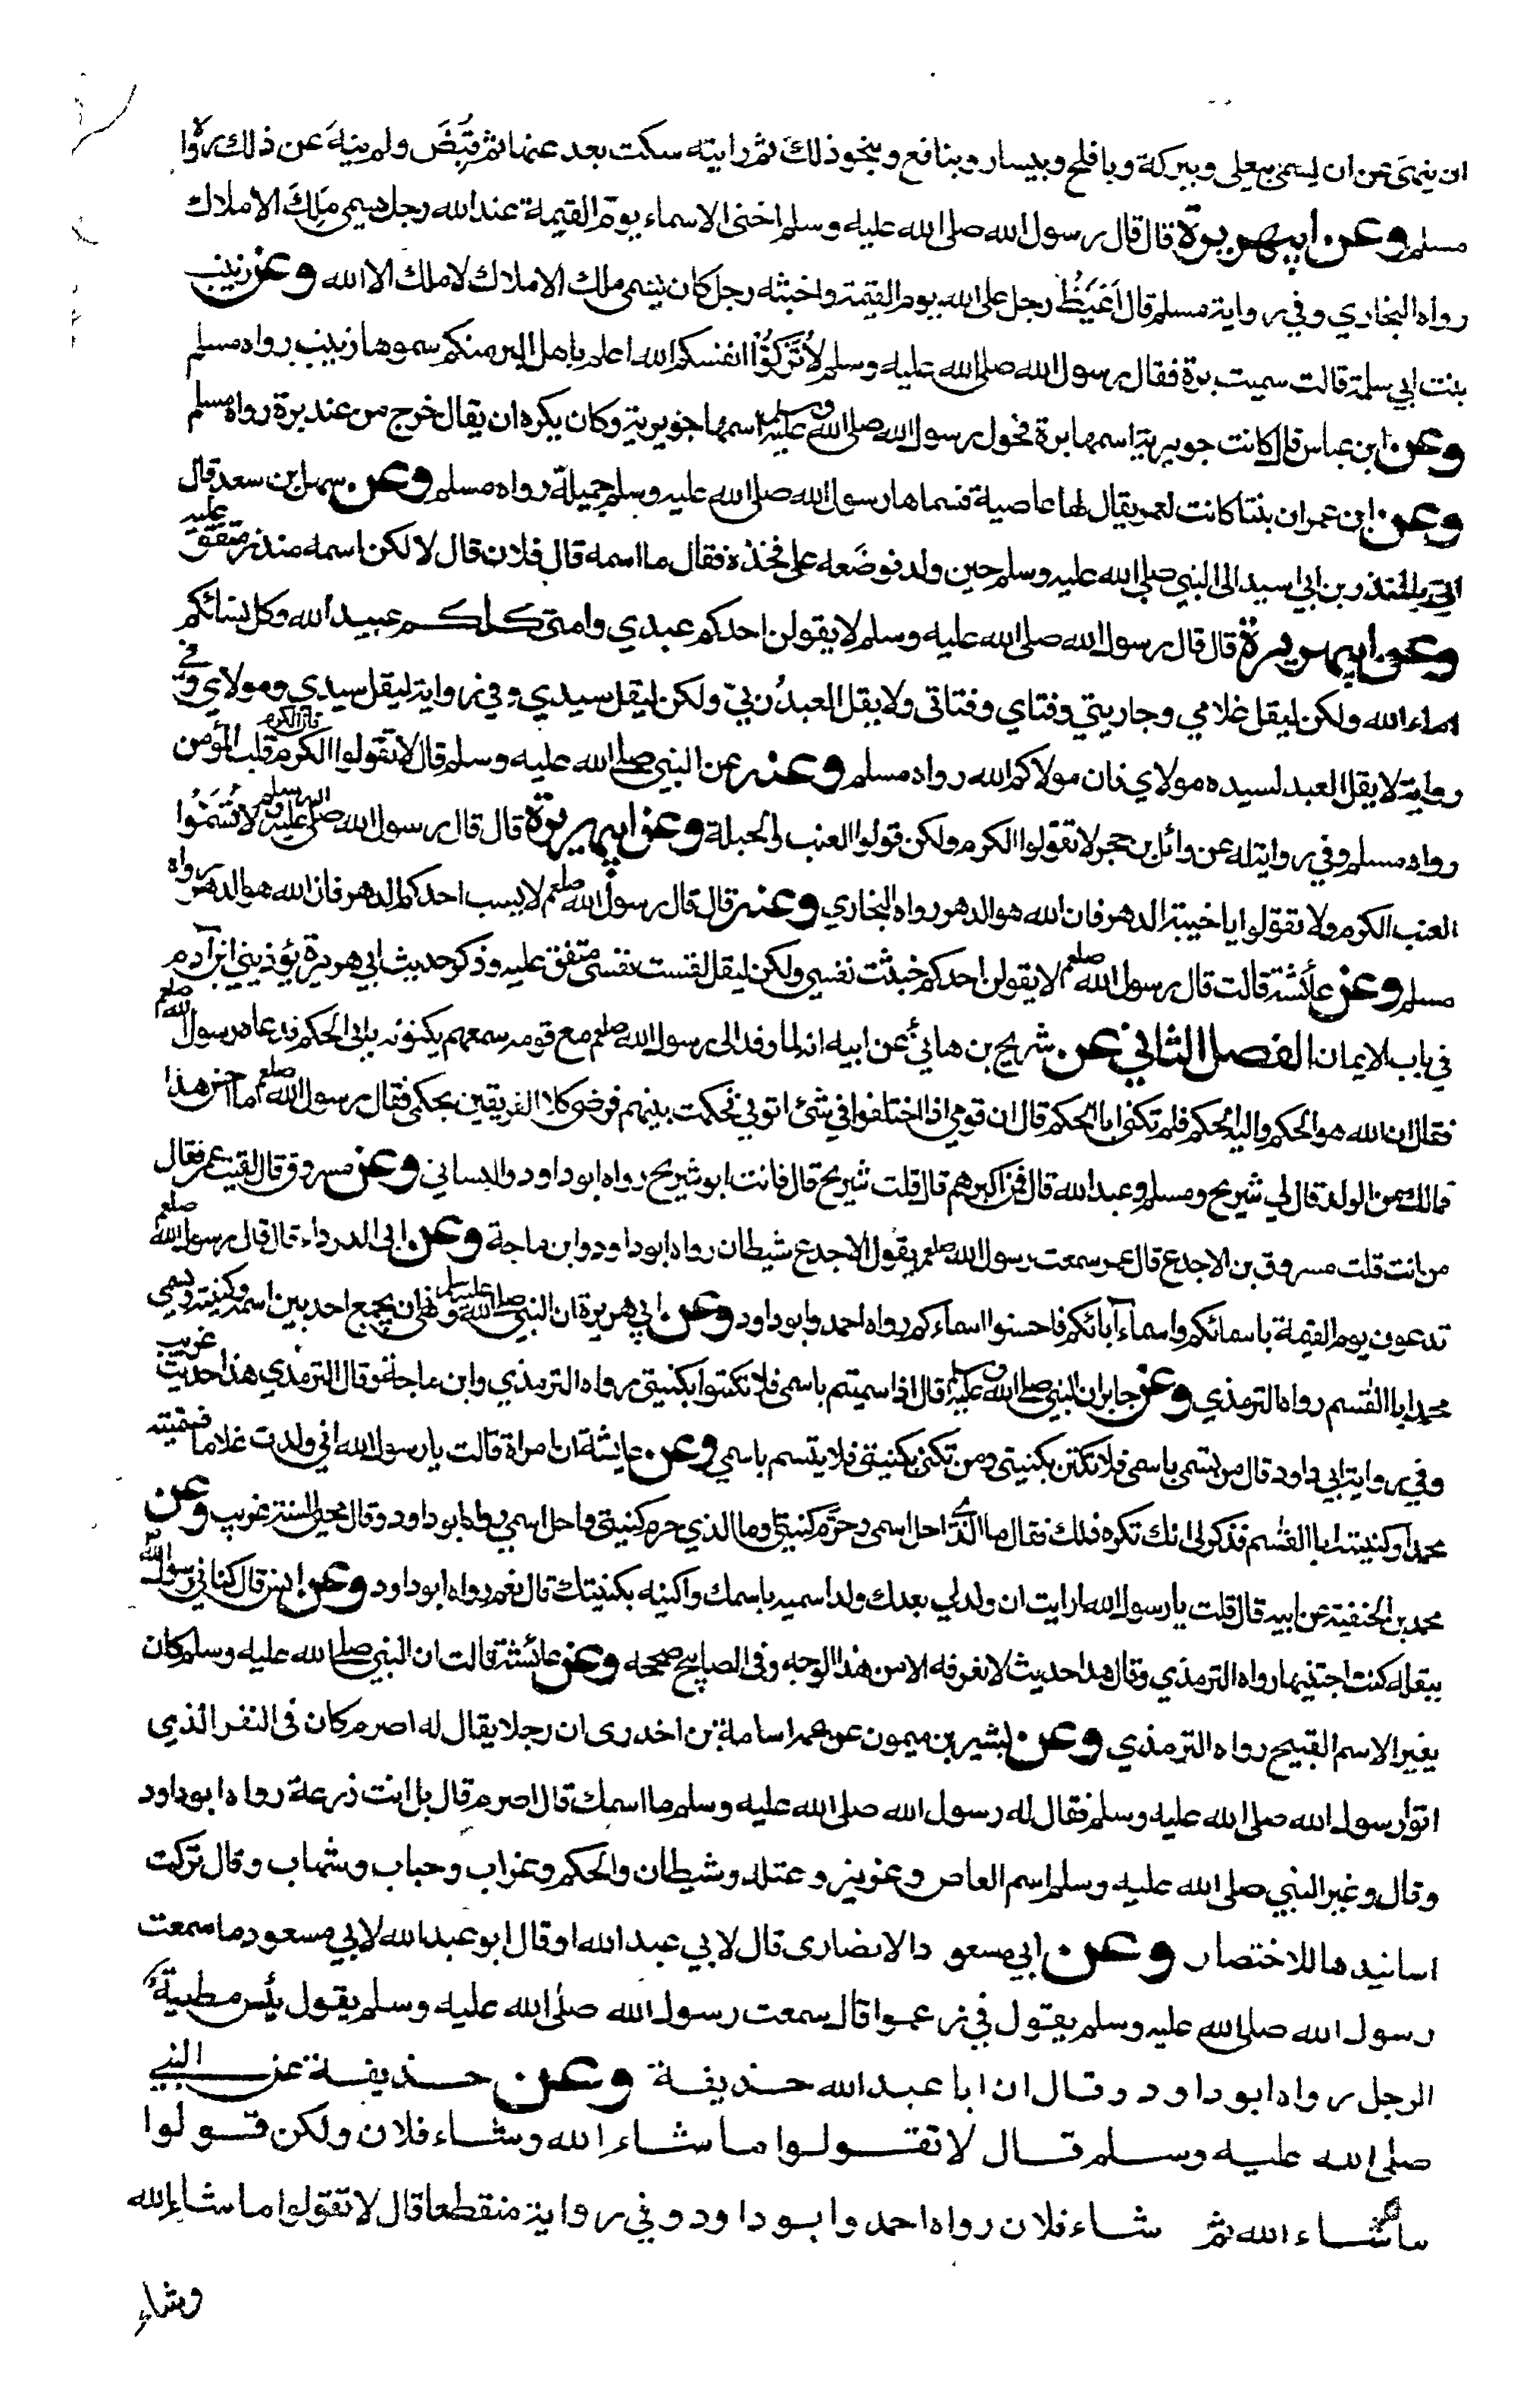 ان ينهى عن ان يسمى بيعلى وببركة وبافلح وبيسار وبنافع وبنحو ذلك ثم رايته سكت بعد عنها ثم قُبِضَ ولم ينهَ عن ذلك رواه
مسلم وعن ابيهريرة قال قال رسول الله صلى الله عليه وسلم اخنى الاسماء يوم القيمة عند الله رجل يسمى مَلِكَ الاملاك
رواه البخاري وفي رواية مسلم قال اَغيَظُ رجل على الله يوم القيمة واخبثه رجل كان يسمى ملك الاملاك لا ملك الا الله وعن زينب
بنت ابي سلمة قالت سميت برة فقال رسول الله صلى الله عليه وسلم لا تُزَكُّوْا انفسكم الله اعلم باهل البر منكم سموها زينب رواه مسلم
وعن ابن عباس قال كانت جويرية اسمها برة فحول رسول الله صلى الله عليه وسلم اسمها جويرية وكان يكره ان يقال خرج من عند برة رواه مسلم
وعن ابن عمر ان بنتا كانت لعمر يقال لها عاصية فسماها رسول الله صلى الله عليه وسلم جميلة رواه مسلم وعن سهل بن سعد قال
اتي بالمنذر بن ابي اسيد الى النبي صلى الله عليه وسلم حين ولد فوضَعه على فخذه فقال ما اسمه قال فلان قال لا لكن اسمه منذر متفق عليه
وعن ابيهريرة قال قال رسول الله صلى الله عليه وسلم لا يقولن احدكم عبدي وامتى كلكم عبيد الله وكل نسائكم
اماء الله ولكن ليقل غلامي وجاريتي وفتاي وفتاتى ولا يقل العبد ربي ولكن ليقل سيدي وفي رواية ليقل سيدي ومولاي وفي
رواية لا يقل العبد لسيده مولاي فان مولاكم الله رواه مسلم وعنه عن النبي صلى الله عليه وسلم قال لا تقولوا الكرم فان الكرم قلب المؤمن
رواه مسلم وفي رواية له عن وائل بن حجر لا تقولوا الكرم ولكن قولوا العنب والحبلة وعن ابيهريرة قال قال رسول الله صلى الله عليه وسلم لا تُسَمُّوا
العنب الكرم ولا تقولوا يا خيبة الدهر فان الله هو الدهر رواه البخاري وعنه قال قال رسول الله صلعم لا يسب احدكم الدهر فان الله هو الدهر رواه
مسلم وعن عائشة قالت قال رسول الله صلعم لا يقولن احدكم خبثت نفسي ولكن ليقل لقست نفسى متفق عليه وذكر حديث ابي هريرة يؤذيني ابن آدم
في باب الايمان الفصل الثاني عن شريح بن هانئ عن ابيه انه لما وفد الى رسول الله صلعم مع قومه سمعهم يكنونه بابى الحكم فدعاه رسول الله صلعم
فقال ان الله هو الحكم واليه الحكم فلم تكنى ابا الحكم قال ان قومي اذا اختلفوا في شئ اتوني فحكمت بينهم فرضى كلا الفريقين بحكمى فقال رسول الله صلعم ما احسن هذا
فمالك من الولد قال لي شريح ومسلم وعبد الله قال فمن اكبرهم قال قلت شريح قال فانت ابو شريح رواه ابو داود والنسائي وعن مسروق قال لقيت عمر فقال
من انت قلت مسروق بن الاجدع قال عمر سمعت رسول الله صلعم يقول الاجدع شيطان رواه ابو داود وابن ماجة وعن ابى الدرداء قال قال رسول الله صلعم
تدعون يوم القيمة باسمائكم واسماء آبائكم فاحسنوا اسماءكم رواه احمد وابو داود وعن ابي هريرة ان النبي صلى الله عليه وسلم نهى ان يجمع احد بين اسمه وكنيته ويسمي
محمدا ابا القسم رواه الترمذي وعن جابر ان النبي صلى الله عليه وسلم قال اذا سميتم باسمى فلا تكتنوا بكنيتى رواه الترمذي وابن ماجة وقال الترمذي هذا حديث غريب
وفي رواية ابي داود قال من تسمى باسمى فلا تكتن بكنيتى ومن تكنى بكنيتى فلا يتسم باسمي وعن عايشة ان امراة قالت يا رسول الله اني ولدت غلاما فسميته
محمدا وكنيته ابا القسم فذكر لى انك تكره ذلك فقال ما الذي احل اسمى وحرّم كنيتى وما الذي حرم كنيتى واحل اسمي رواه ابو داود وقال محيى السنة غريب وعن
محمد بن الحنفية عن ابيه قال قلت يا رسول الله ارايت ان ولد لي بعدك ولد اسميه باسمك واكنيه بكنيتك قال نعم رواه ابو داود وعن انس قال كناني رسول الله
ببقلة كنت اجتنيها رواه الترمذي وقال هذا حديث لا نعرفه الا من هذا الوجه وفى المصابيح صححه وعن عائشة قالت ان النبي صلى الله عليه وسلم كان
يغير الاسم القبيح رواه الترمذي وعن بشير بن ميمون عن عمه اسامة بن اخدرى ان رجلا يقال له اصرم كان فى النفر الذي
اتوا رسول الله صلى الله عليه وسلم فقال له رسول الله صلى الله عليه وسلم ما اسمك قال اصرم قال بل انت زرعة رواه ابو داود
وقال وغير النبي صلى الله عليه وسلم اسم العاص وعزيز وعتلة وشيطان والحكم وغراب وحباب وشهاب وقال تركت
اسانيدها للاختصار وعن ابي مسعود الانصارى قال لابي عبد الله او قال ابو عبد الله لابي مسعود ما سمعت
رسول الله صلى الله عليه وسلم يقول في زعموا قال سمعت رسول الله صلى الله عليه وسلم يقول بئس مطية
الرجل رواه ابو داود وقال ان ابا عبد الله حذيفة وعن حذيفة عن النبي
صلى الله عليه وسلم قال لا تقولوا ما شاء الله وشاء فلان ولكن قولوا
ما شاء الله ثم شاء فلان رواه احمد وابو داود وفي رواية منقطعا قال لا تقولوا ما شاء الله
وشاء